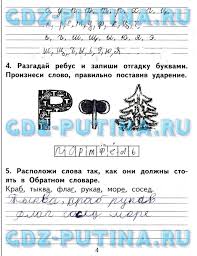 4. Разгадай ребус и запиши отгадку буквами.
Произнеси слово, правильно поставив ударение.
Р
партфель
5. Расположи слова так, как они должны сто-
ять в Обратном словаре.
Краб, тыква, флаг, рукав, море, сосед.
Тыква, краб рукав
флаг сосед море
4
GDZ-PUTINA.RU
GDZ-PUTINA.RU
GDZ-PUTINA.RU